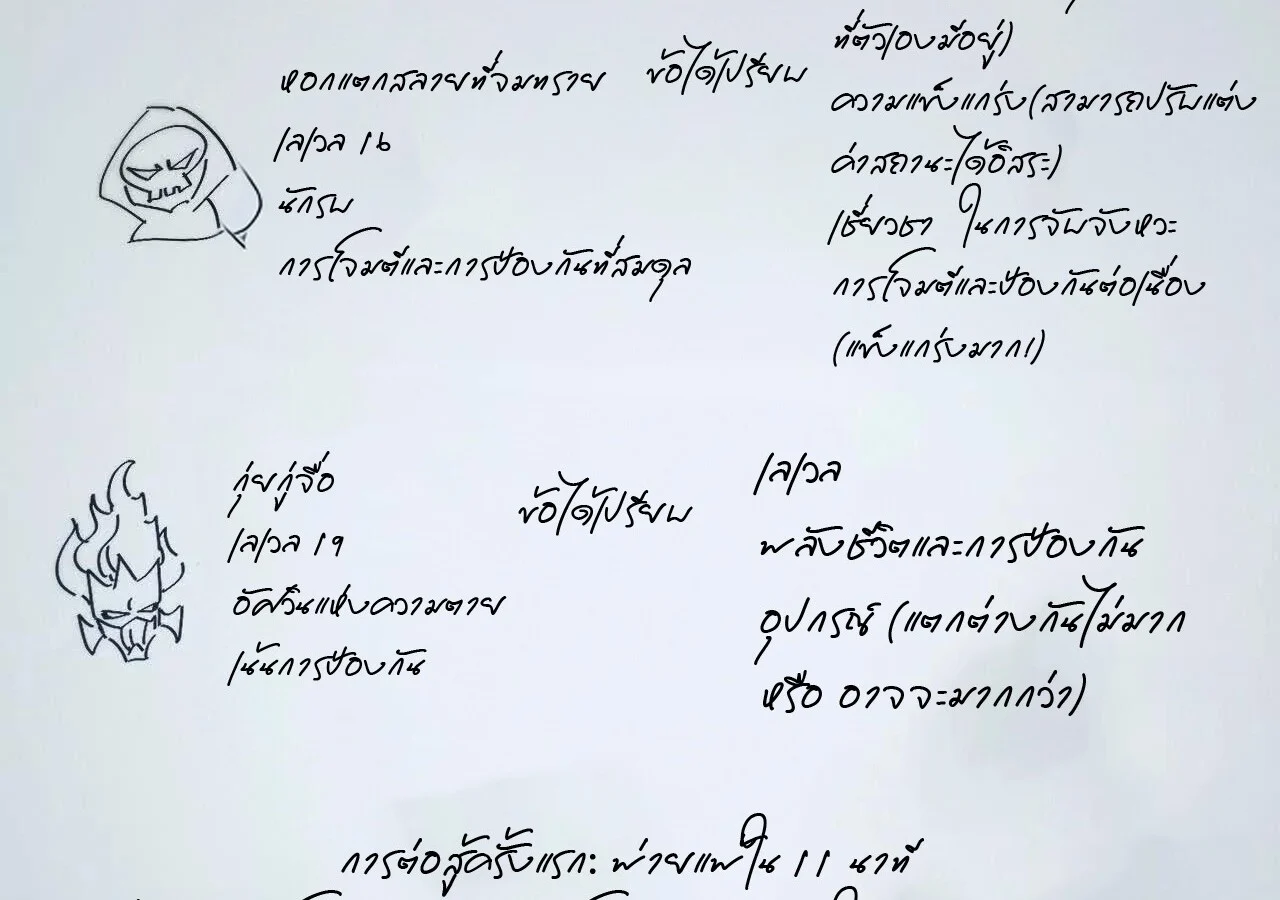 ที่ตัวเองมีอยู่)
หอกแตกสลายที่จมทราย
ข้อได้เปรียบ
ความแข็งแกร่ง(สามารถปรับแต่ง
เลเวล 16
ค่าสถานะได้อิสระ)
นักรบ
เชี่ยวชา ในการจับจังหวะ
การโจมตีและการป้องกันที่สมดุล
การโจมตีและป้องกันต่อเนื่อง
(แข็งแกร่งมาก!)
กุ่ยกู่จื่อ
ข้อได้เปรียบ
เลเวล
เลเวล 19
พลังชีวิตและการป้องกัน
อัศวินแห่งความตาย
อุปกรณ์ (แตกต่างกันไม่มาก
เน้นการป้องกัน
หรือ อาจจะมากกว่า)
การต่อสู้ครั้งแรก: พ่ายแพ้ใน 11 นาที